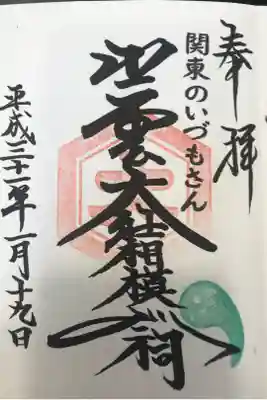 奉拝
関東のいづもさん
出雲大社相模分祠
平成三十一年一月十九日